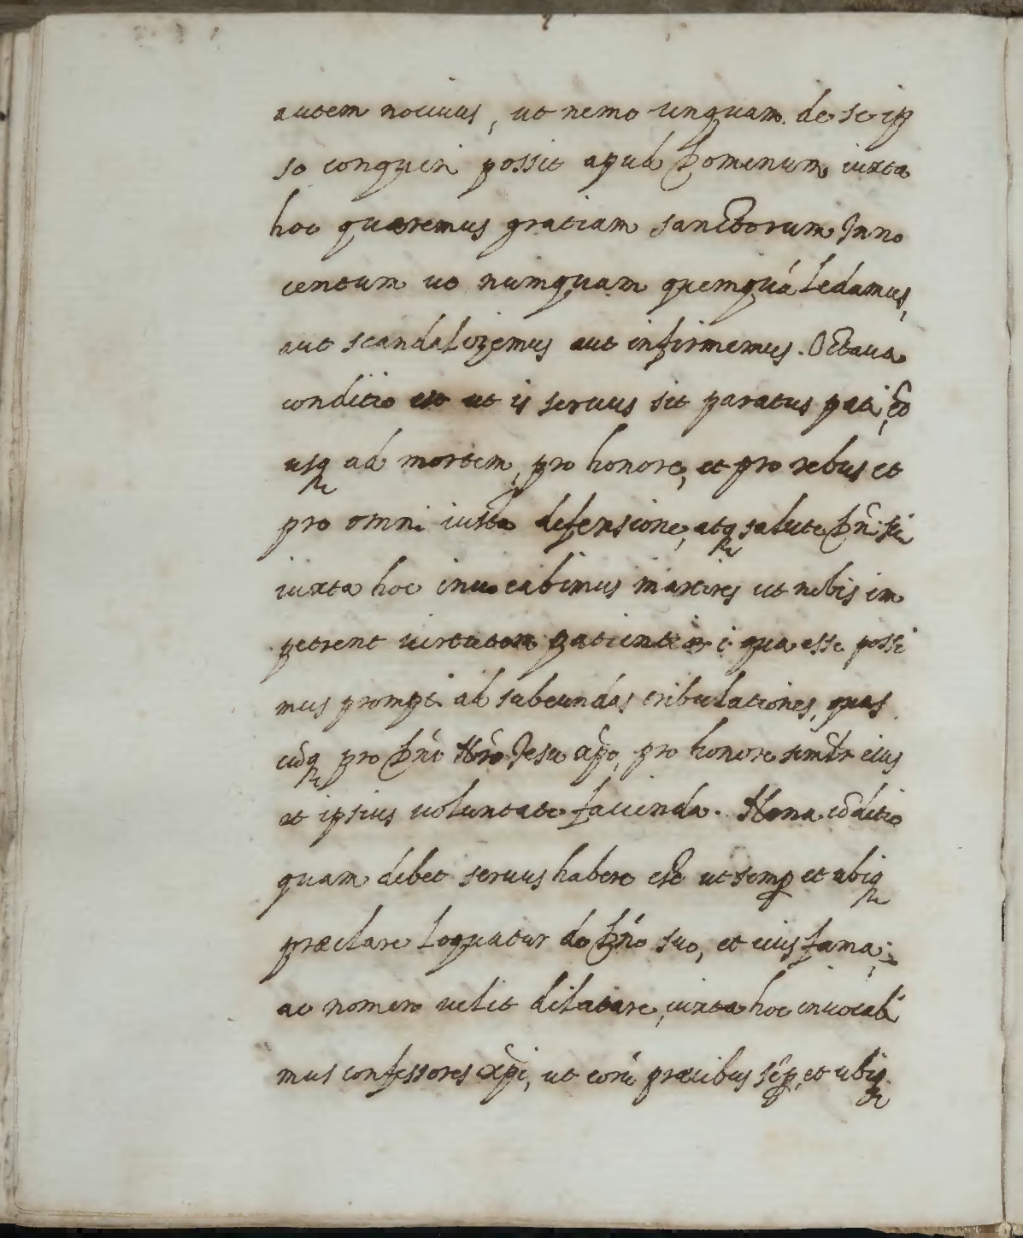 autem nociuus, ut nemo unquam de se ip
so conqueri possit apud Dominum, iuxta
hoc quaeremus gratiam sanctorum Inno
centum ut numquam quemquá ledamus,
aut scandalizemus aut infirmemus. Octaua
conditio est ut is seruus sit paratus pati,
usq ad mortem, pro honore, et pro rebus et
pro omni iusta defensione, atq salute Dñi sui
iuxta hoc inuocabimus martires ut nobis im
petrent uirtutem patientiae i qua esse possi
mus prompti ad subeundas tribulationes, quas
cũq pro Dño Nro Jesu xpo, pro honore eius
et ipsius uoluntate facienda. Nona cõditio
quam debet seruus habere est ut semp et ubiq
praeclare loquatur de Dño suo, et eius fama,
ac nomen uelit dilatare, iuxta hoc inuocabi
mus confessores xpi, ut eorũ praecibus sẽp, et ubiq